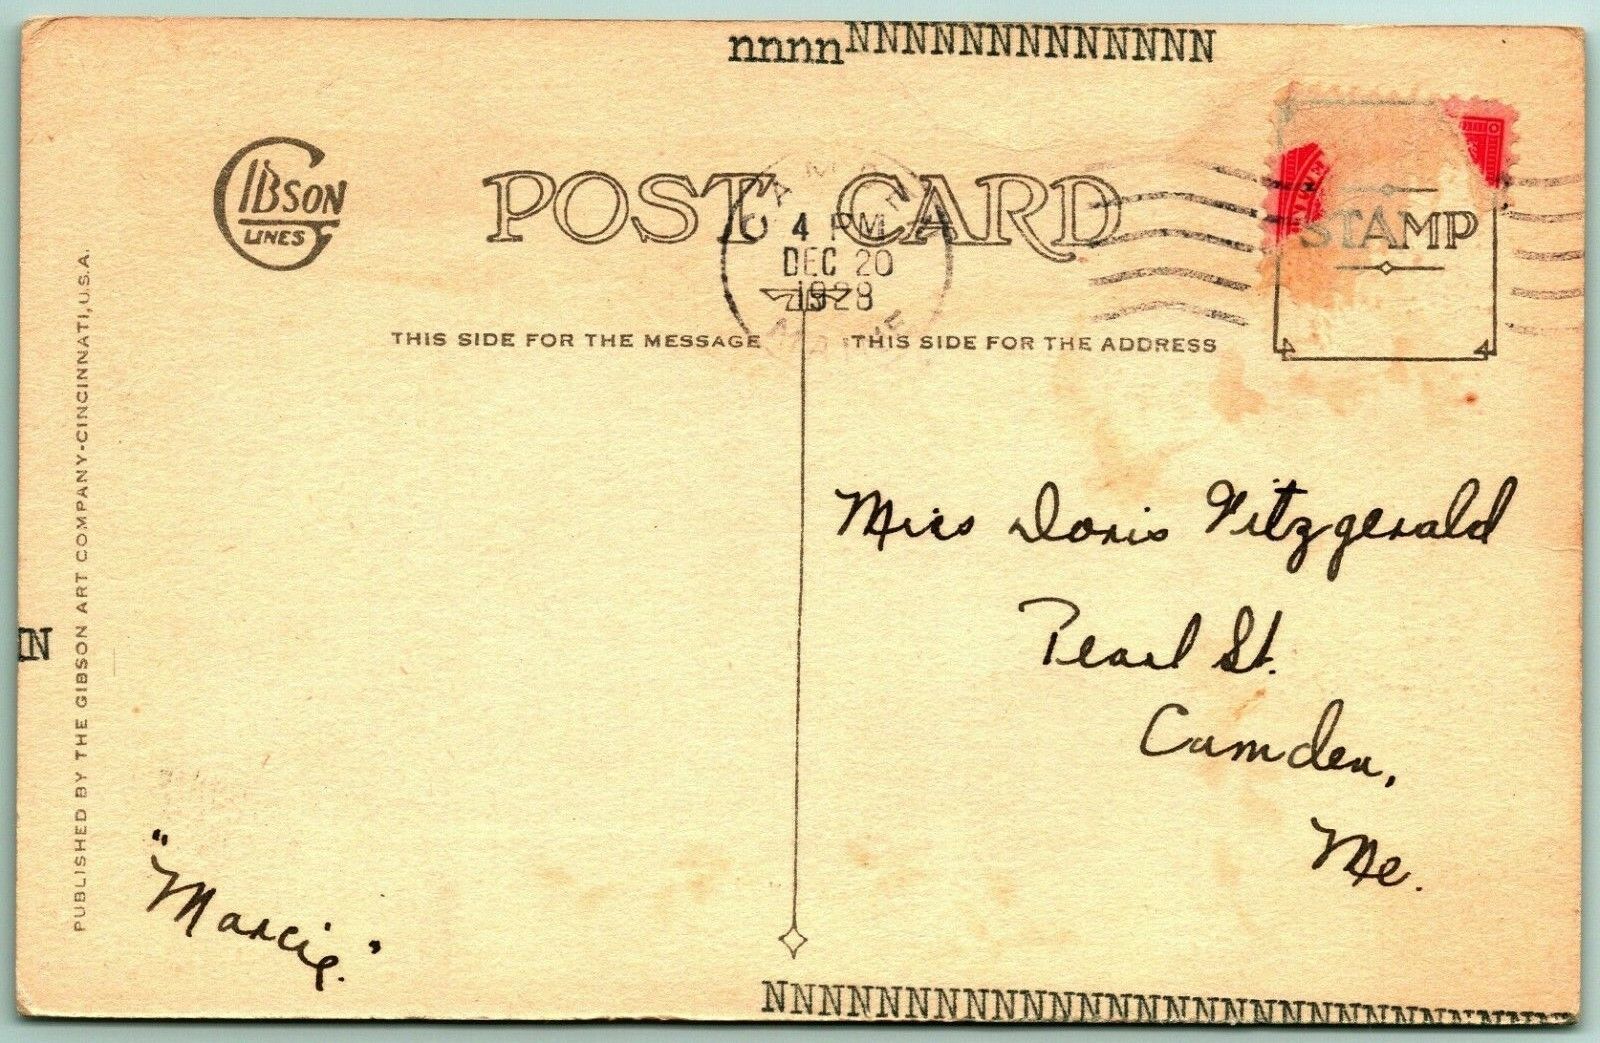 nnnnNNNNNNNNNNNNN
GIBSON
LINES
POST CARD
CAMDEN
4 PM
DEC 20
1928
MAINE
STAMP
THIS SIDE FOR THE MESSAGE
THIS SIDE FOR THE ADDRESS
PUBLISHED BY THE GIBSON ART COMPANY-CINCINNATI, U.S.A.
Miss Doris Fitzgerald
Pearl St.
Camden,
Me.
"Marcie."